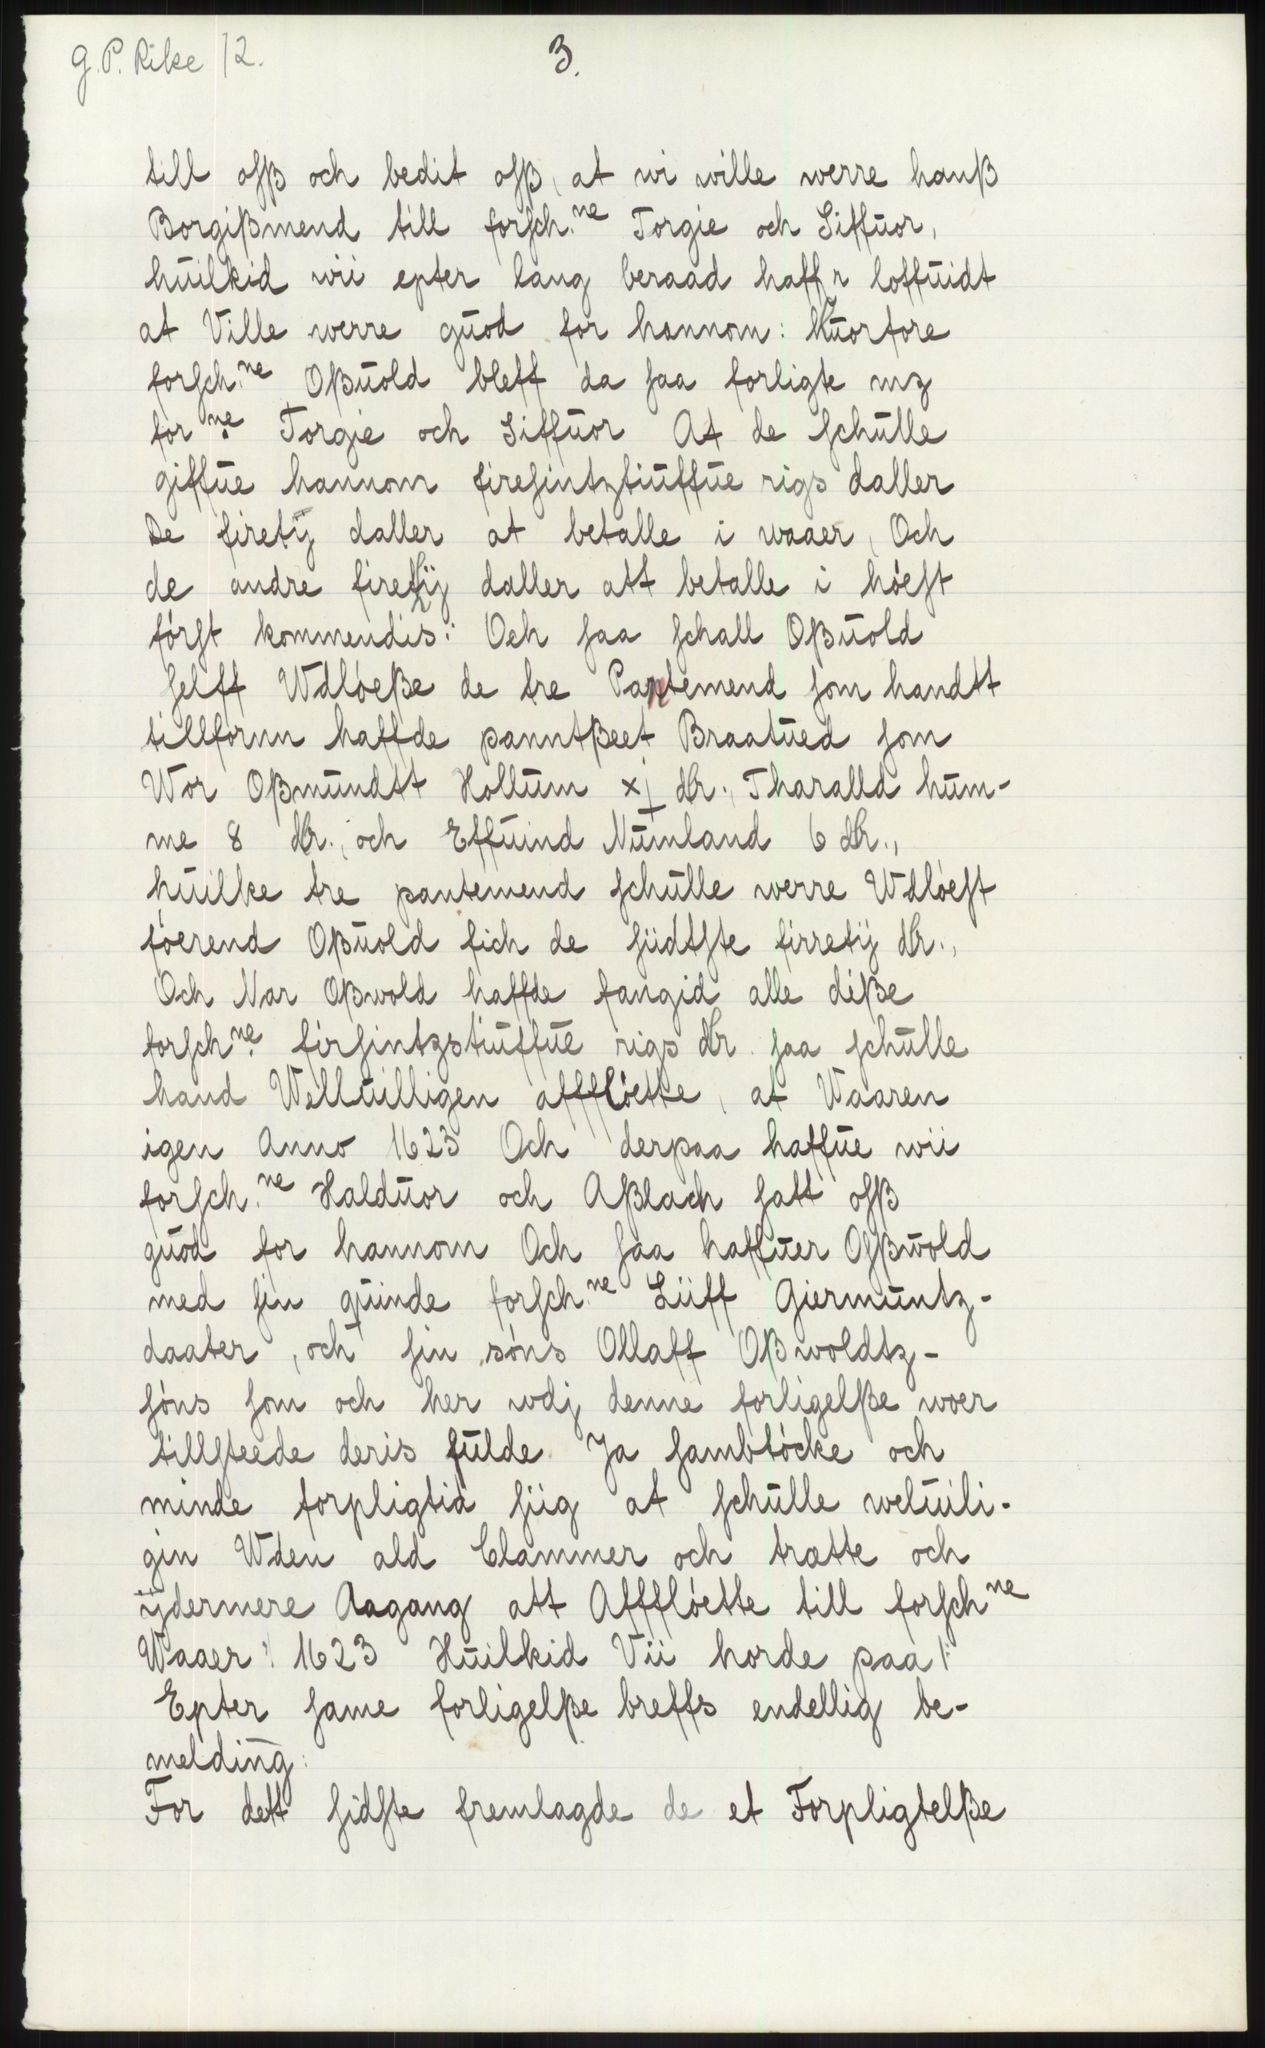 G. P. Rike /2.
3.
till ofß och bedit ofß, at wi wille werre hanß
Borgißmend till forsch.ne Torgie och Siffuor,
huilkid wii epter lang beraad haffr loffuidt
at Ville werre guod for hannom: Huorfore
forsch.ne Oßuold bleff da saa forligte mz
for.ne Torgie och Siffuor At de schulle
giffue hannom firesintztiuffue rigs daller
De firetÿ daller at betalle i waaer, Och
de andre firetÿ daller att betalle i höest
förft kommendis: Och saa schall Oßuold
selff Wdlöeße de tre Pantemend som handtt
tillfornn haffde panntßeet Braatued som
Wor Oßmundtt Hollum xj dlr., Tharalld hum-
me 8 dlr., och Effuind Numland 6 dlr.,
huilke tre pantemend schulle werre Wdlöest
föerend Oßuold fich de siidtste firretÿ dlr.,
Och Nar Oßwold haffde fangid alle diße
forsch.ne firsintzstiuffue rigs dlr. saa schulle
hand Welluilligen affflöette, at Waaren
igen Anno 1623 Och derpaa haffue wii
forsch.ne Halduor och Aßlach satt ofß
guod for hannom Och saa haffuer Ofßwold
med sin quinde forsch.ne Liiff Giermuntz-
daater, och sin söns Ollaff Oßwoldtz-
söns som och her wdj denne forligelße woer
tillsteede deris fulde Ja sambtöcke och
minde forpligtid siig at schulle weluili-
gin Wden ald Clammer och trætte och
ÿdermere Aagang att Affflöette till forsch.ne
Waaer: 1623 Huilkid Vii horde paa /:
Epter same forligelße breffs endellig be-
melding:
For dett sidste fremlagde de et Forpligtelße